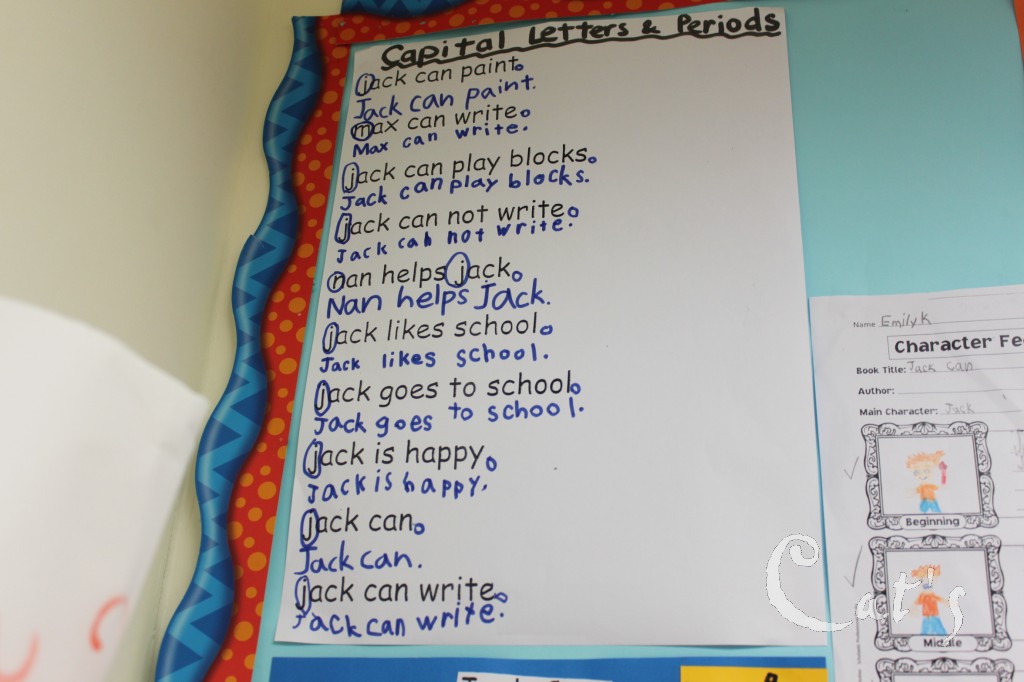 Capital Letters & Periods
jack can paint.
Jack can paint.
max can write.
Max can write.
jack can play blocks.
Jack can play blocks.
jack can not write.
Jack can not write.
nan helps jack.
Nan helps Jack.
jack likes school.
Jack likes school.
jack goes to school.
Jack goes to school.
jack is happy.
Jack is happy.
jack can.
Jack can.
jack can write.
Jack can write.
Name Emily K
Character
Book Title: Jack Can
Author:
Main Character: Jack
Beginning
Middle
Cat's